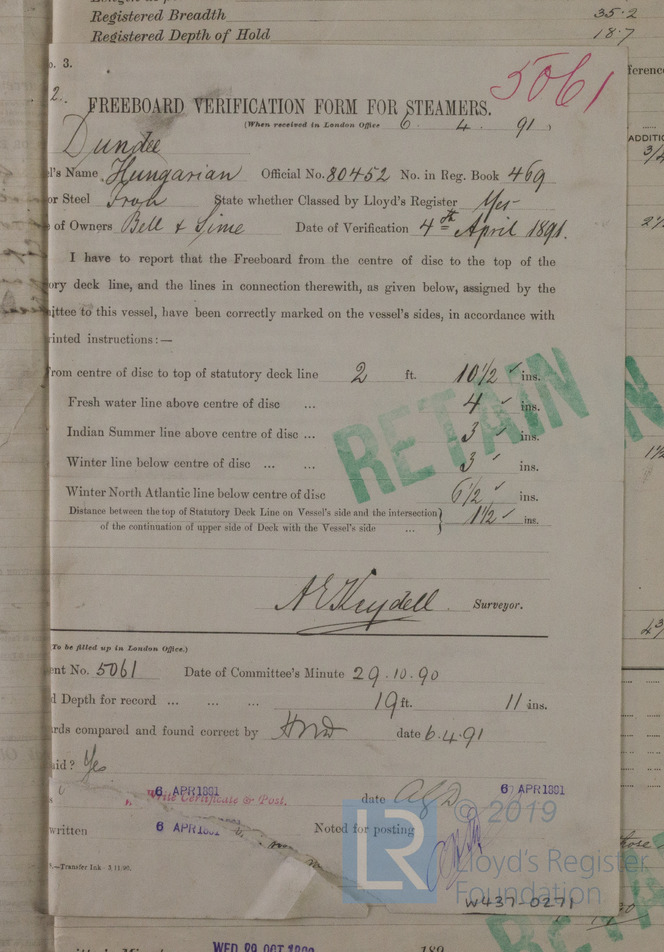 Registered Breadth 35·2
Registered Depth of Hold 18·7
o. 3.
5061
2.
FREEBOARD VERIFICATION FORM FOR STEAMERS.
(When received in London Office 6. 4. 91.)
Dundee
l's Name Hungarian Official No. 80452 No. in Reg. Book 469
or Steel Iron State whether Classed by Lloyd's Register Yes
e of Owners Bell & Sime Date of Verification 4th April 1891.
I have to report that the Freeboard from the centre of disc to the top of the
ory deck line, and the lines in connection therewith, as given below, assigned by the
ittee to this vessel, have been correctly marked on the vessel's sides, in accordance with
rinted instructions:—
from centre of disc to top of statutory deck line 2 ft. 10 1/2 ins.
Fresh water line above centre of disc ... 4 ins.
Indian Summer line above centre of disc ... 3 ins.
Winter line below centre of disc ... ... 3 ins.
Winter North Atlantic line below centre of disc 6 1/2 ins.
Distance between the top of Statutory Deck Line on Vessel's side and the intersection
of the continuation of upper side of Deck with the Vessel's side ... } 1 1/2 ins.
RETAIN
Surveyor.
To be filled up in London Office.)
ent No. 5061 Date of Committee's Minute 29.10.90
d Depth for record ... ... ... 19 ft. 11 ins.
rds compared and found correct by date 6.4.91
aid? Yes
6 APR 1891 Write Certificate & Post. date 6 APR 1891
written 6 APR 1891 Noted for posting
© 2019
LR Lloyd's Register
Foundation
—Transfer Ink—
W437-0271